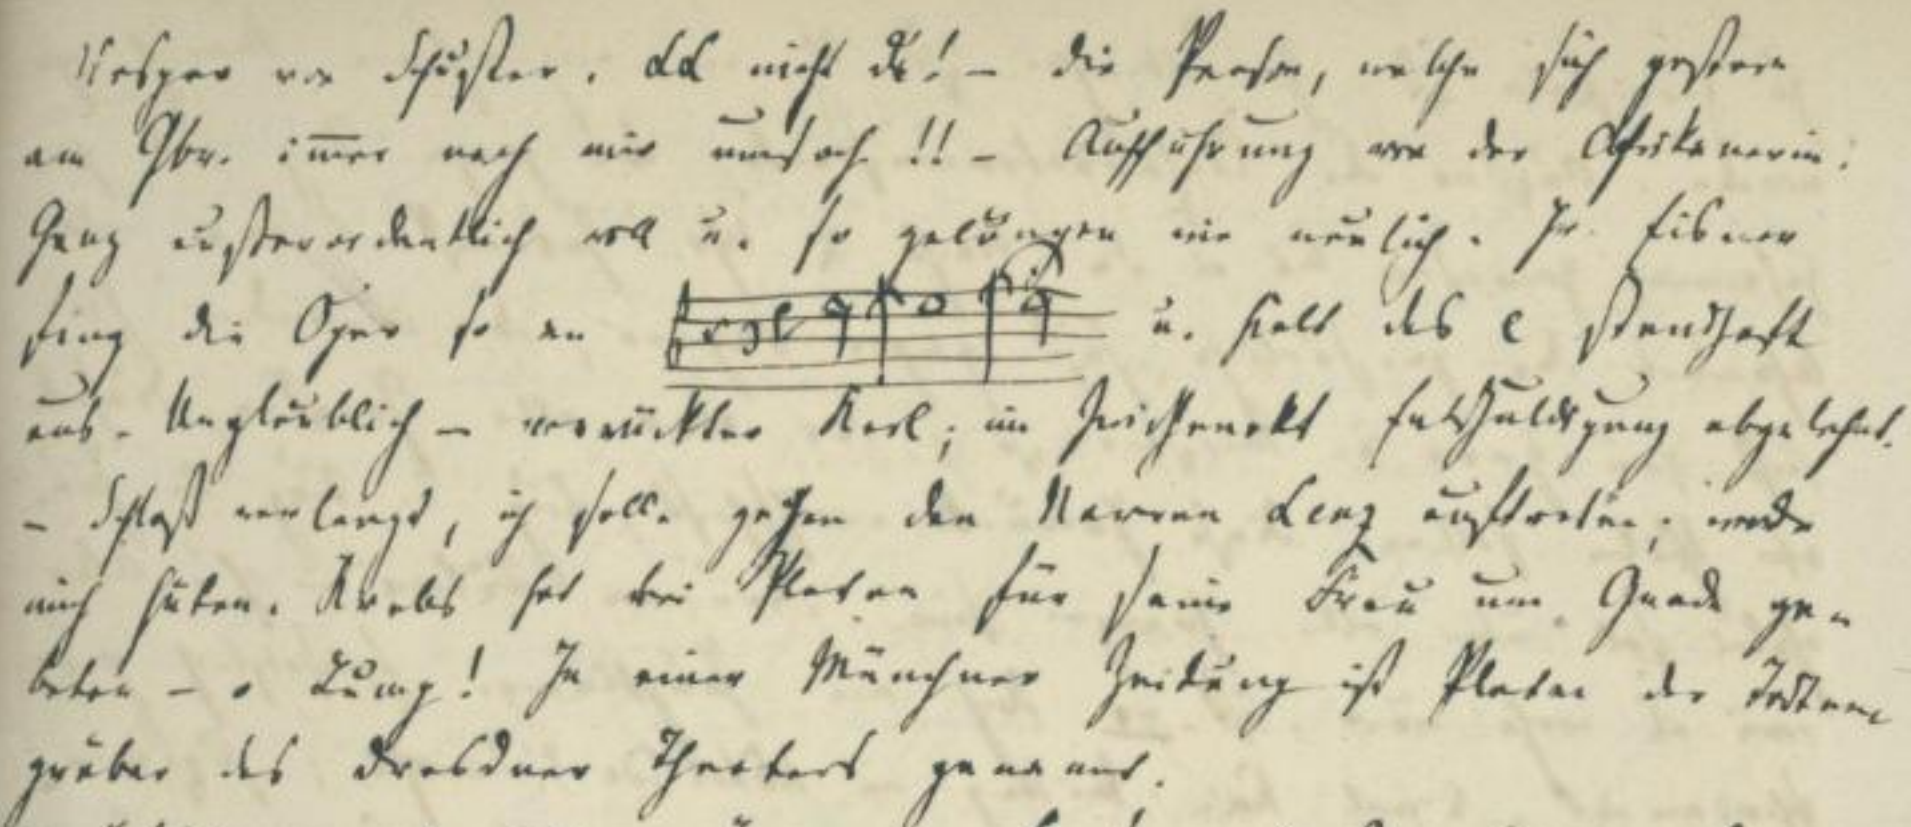 Vesper von Schuster. LL nicht da! – die Person, welche sich gestern
am Gbr. im̅er nach mir umsah!! – Aufführung von der Afrikanerin.
Ganz außerordentlich voll u. so gelungen wie neulich. Hr. Eisner
fing die Oper so an u. hielt das e standhaft
aus. Unglaublich – verrückter Kerl; im Zwischenakt Entschuldigung abgelehnt.
– Schloß verlangt, ich solle gegen den Narren Lenz auftreten; werde
mich hüten. Krebs hat bei Platen für seine Frau um Gnade ge-
beten – o Lump! In einer Münchner Zeitung ist Platen der Todten-
gräber des Dresdner Theaters genannt.